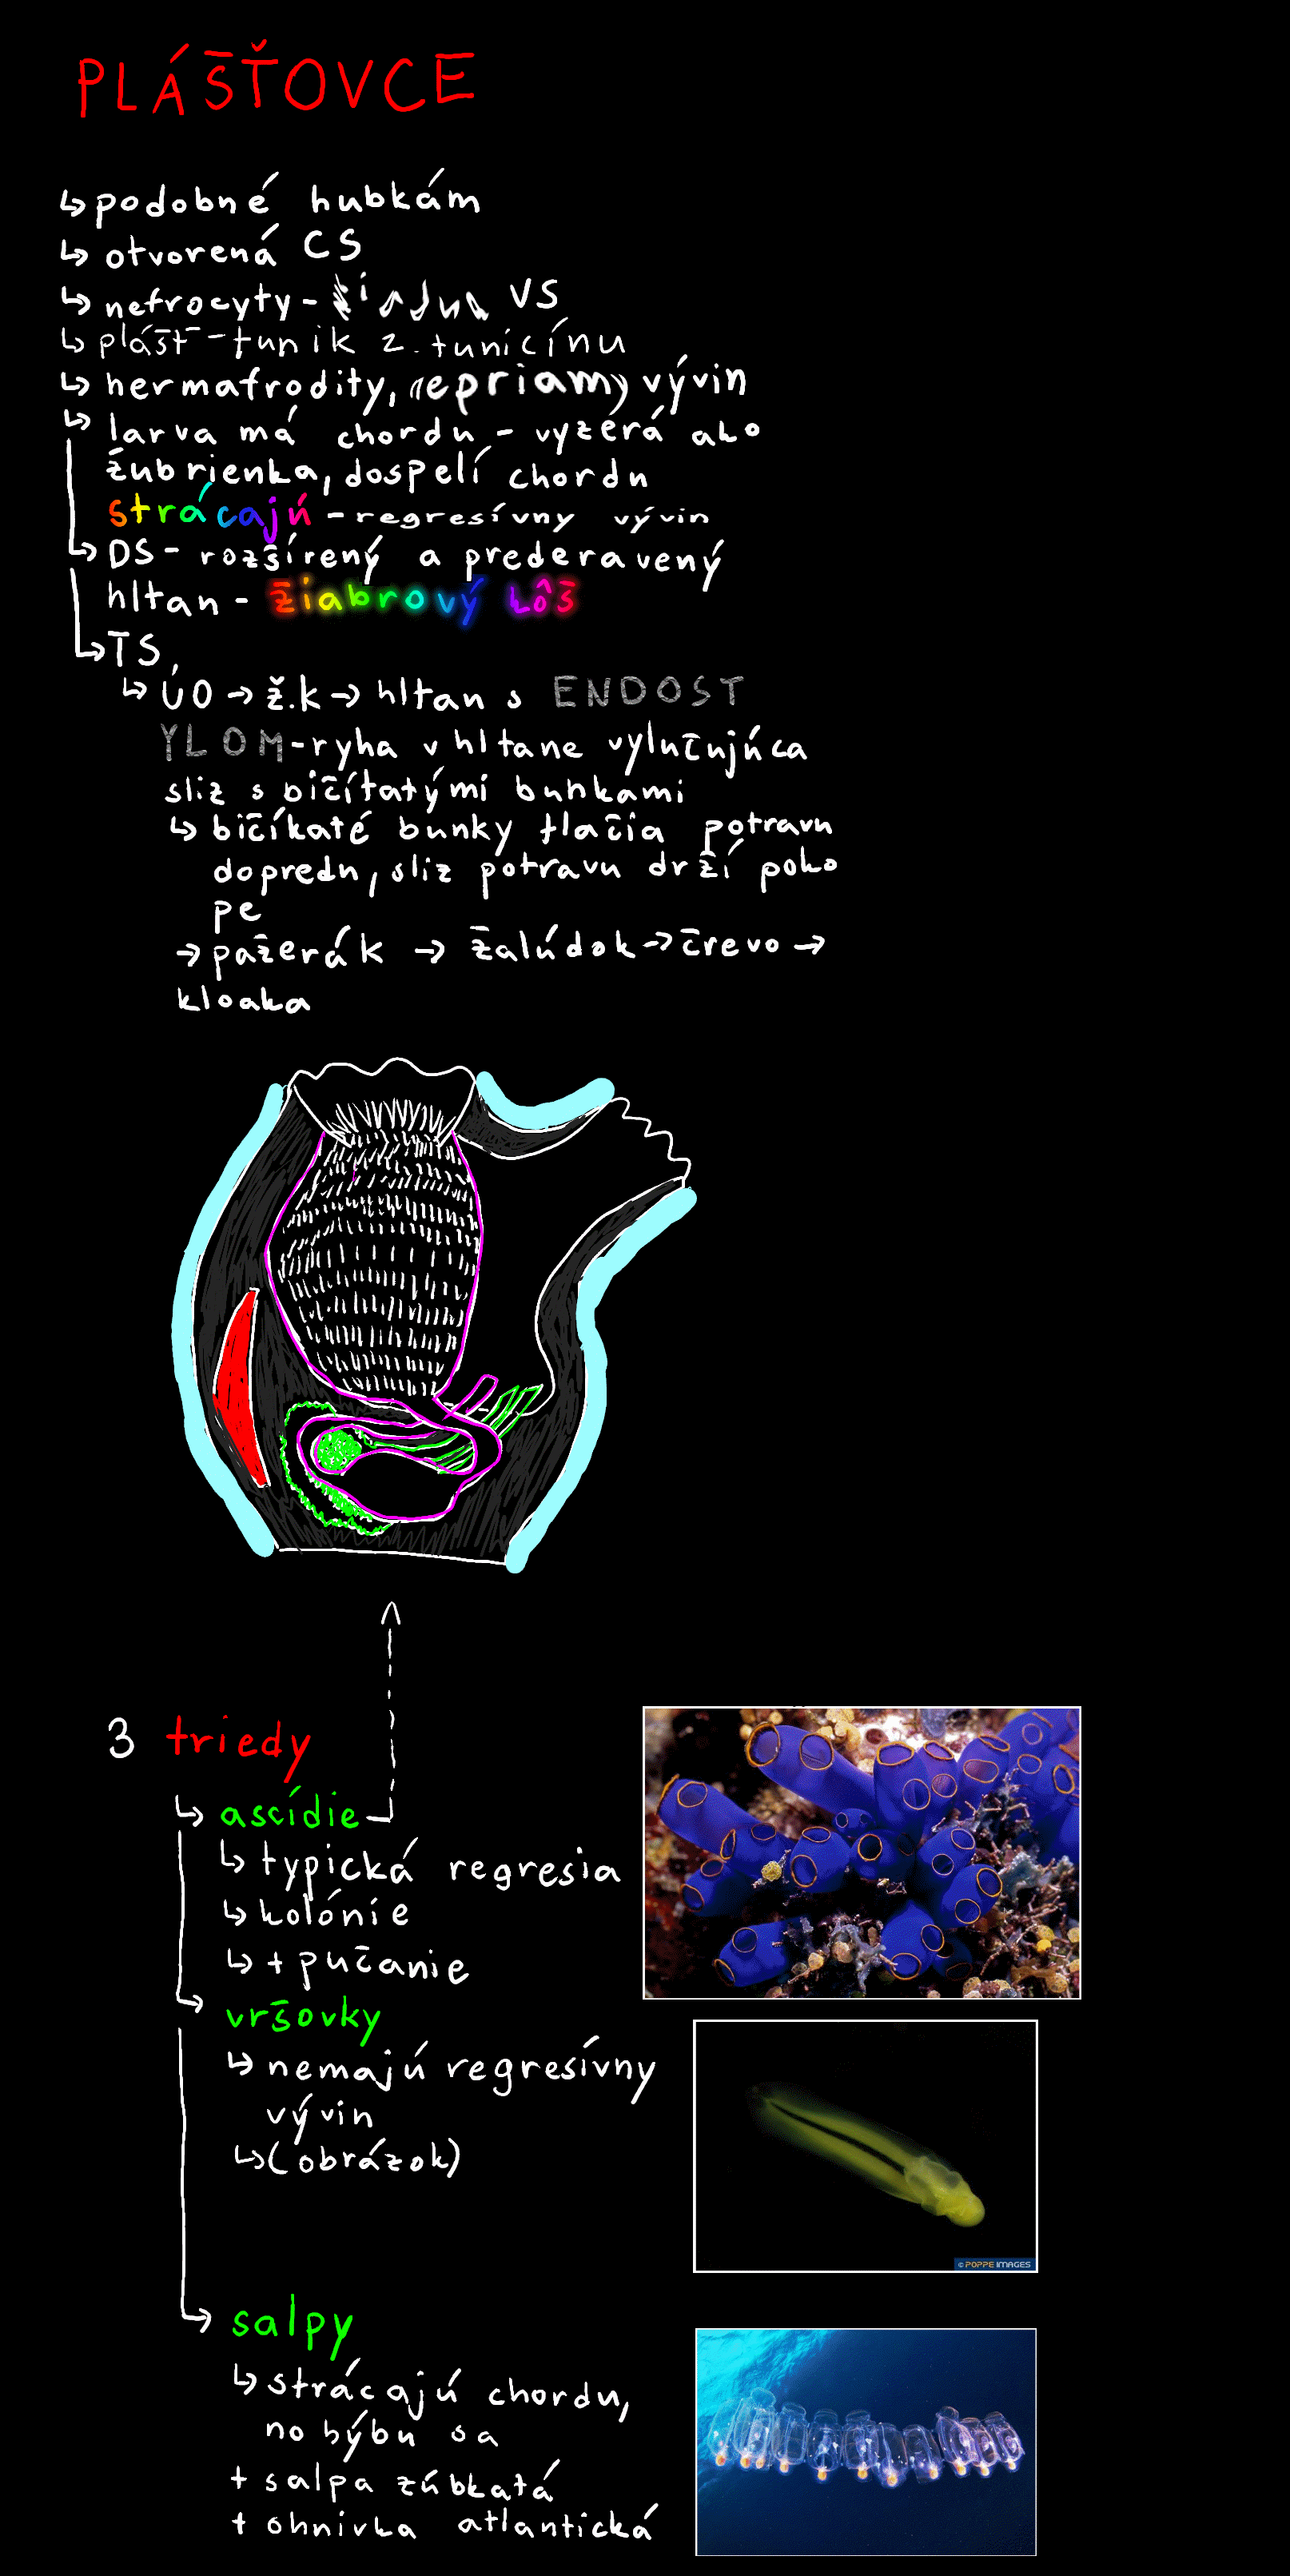 PLÁŠŤOVCE
↳ podobné hubkám
↳ otvorená CS
↳ nefrocyty - žiadna VS
↳ plášť - tunik z. tunicínu
↳ hermafrodity, nepriamy vývin
↳ larva má chordu - vyzerá ako
žubrienka, dospelí chordu
strácajú - regresívny vývin
↳ DS - rozšírený a prederavený
hltan - žiabrový kôš
↳ TS
↳ ÚO → ž.k → hltan s ENDOST
YLOM - ryha v hltane vylučujúca
sliz s bičítatými bunkami
↳ bičíkaté bunky tlačia potravu
dopredu, sliz potravu drží poko
pe
→ pažerák → žalúdok → črevo →
kloaka
3 triedy
↳ ascídie
↳ typická regresia
↳ kolónie
↳ + pučanie
↳ vršovky
↳ nemajú regresívny
vývin
↳ (obrázok)
© POPPE IMAGES
↳ salpy
↳ strácajú chordu,
no hýbu sa
+ salpa zúbkatá
+ ohnivka atlantická